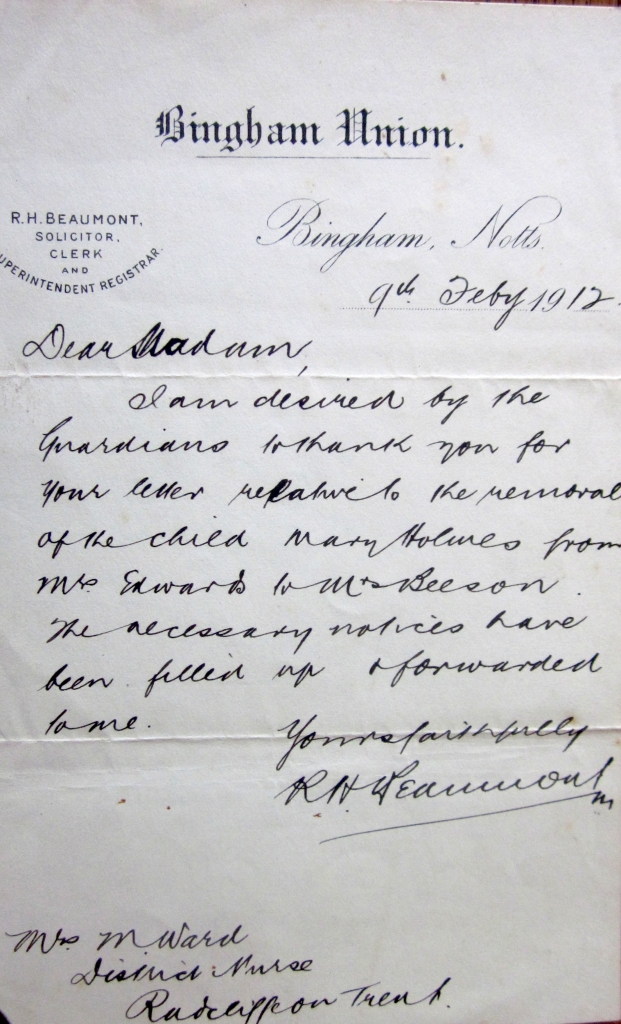 Bingham Union.
R.H. BEAUMONT,
SOLICITOR,
CLERK
AND
SUPERINTENDENT REGISTRAR.
Bingham, Notts.
9th Feby 1912.
Dear Madam,
I am desired by the
Guardians to thank you for
your letter relative to the removal
of the child Mary Holmes from
Mrs Edwards to Mrs Beeson.
The necessary notices have
been filled up & forwarded
to me.
Yours faithfully
R H Beaumont
Mrs M Ward
District Nurse
Radcliffe on Trent.